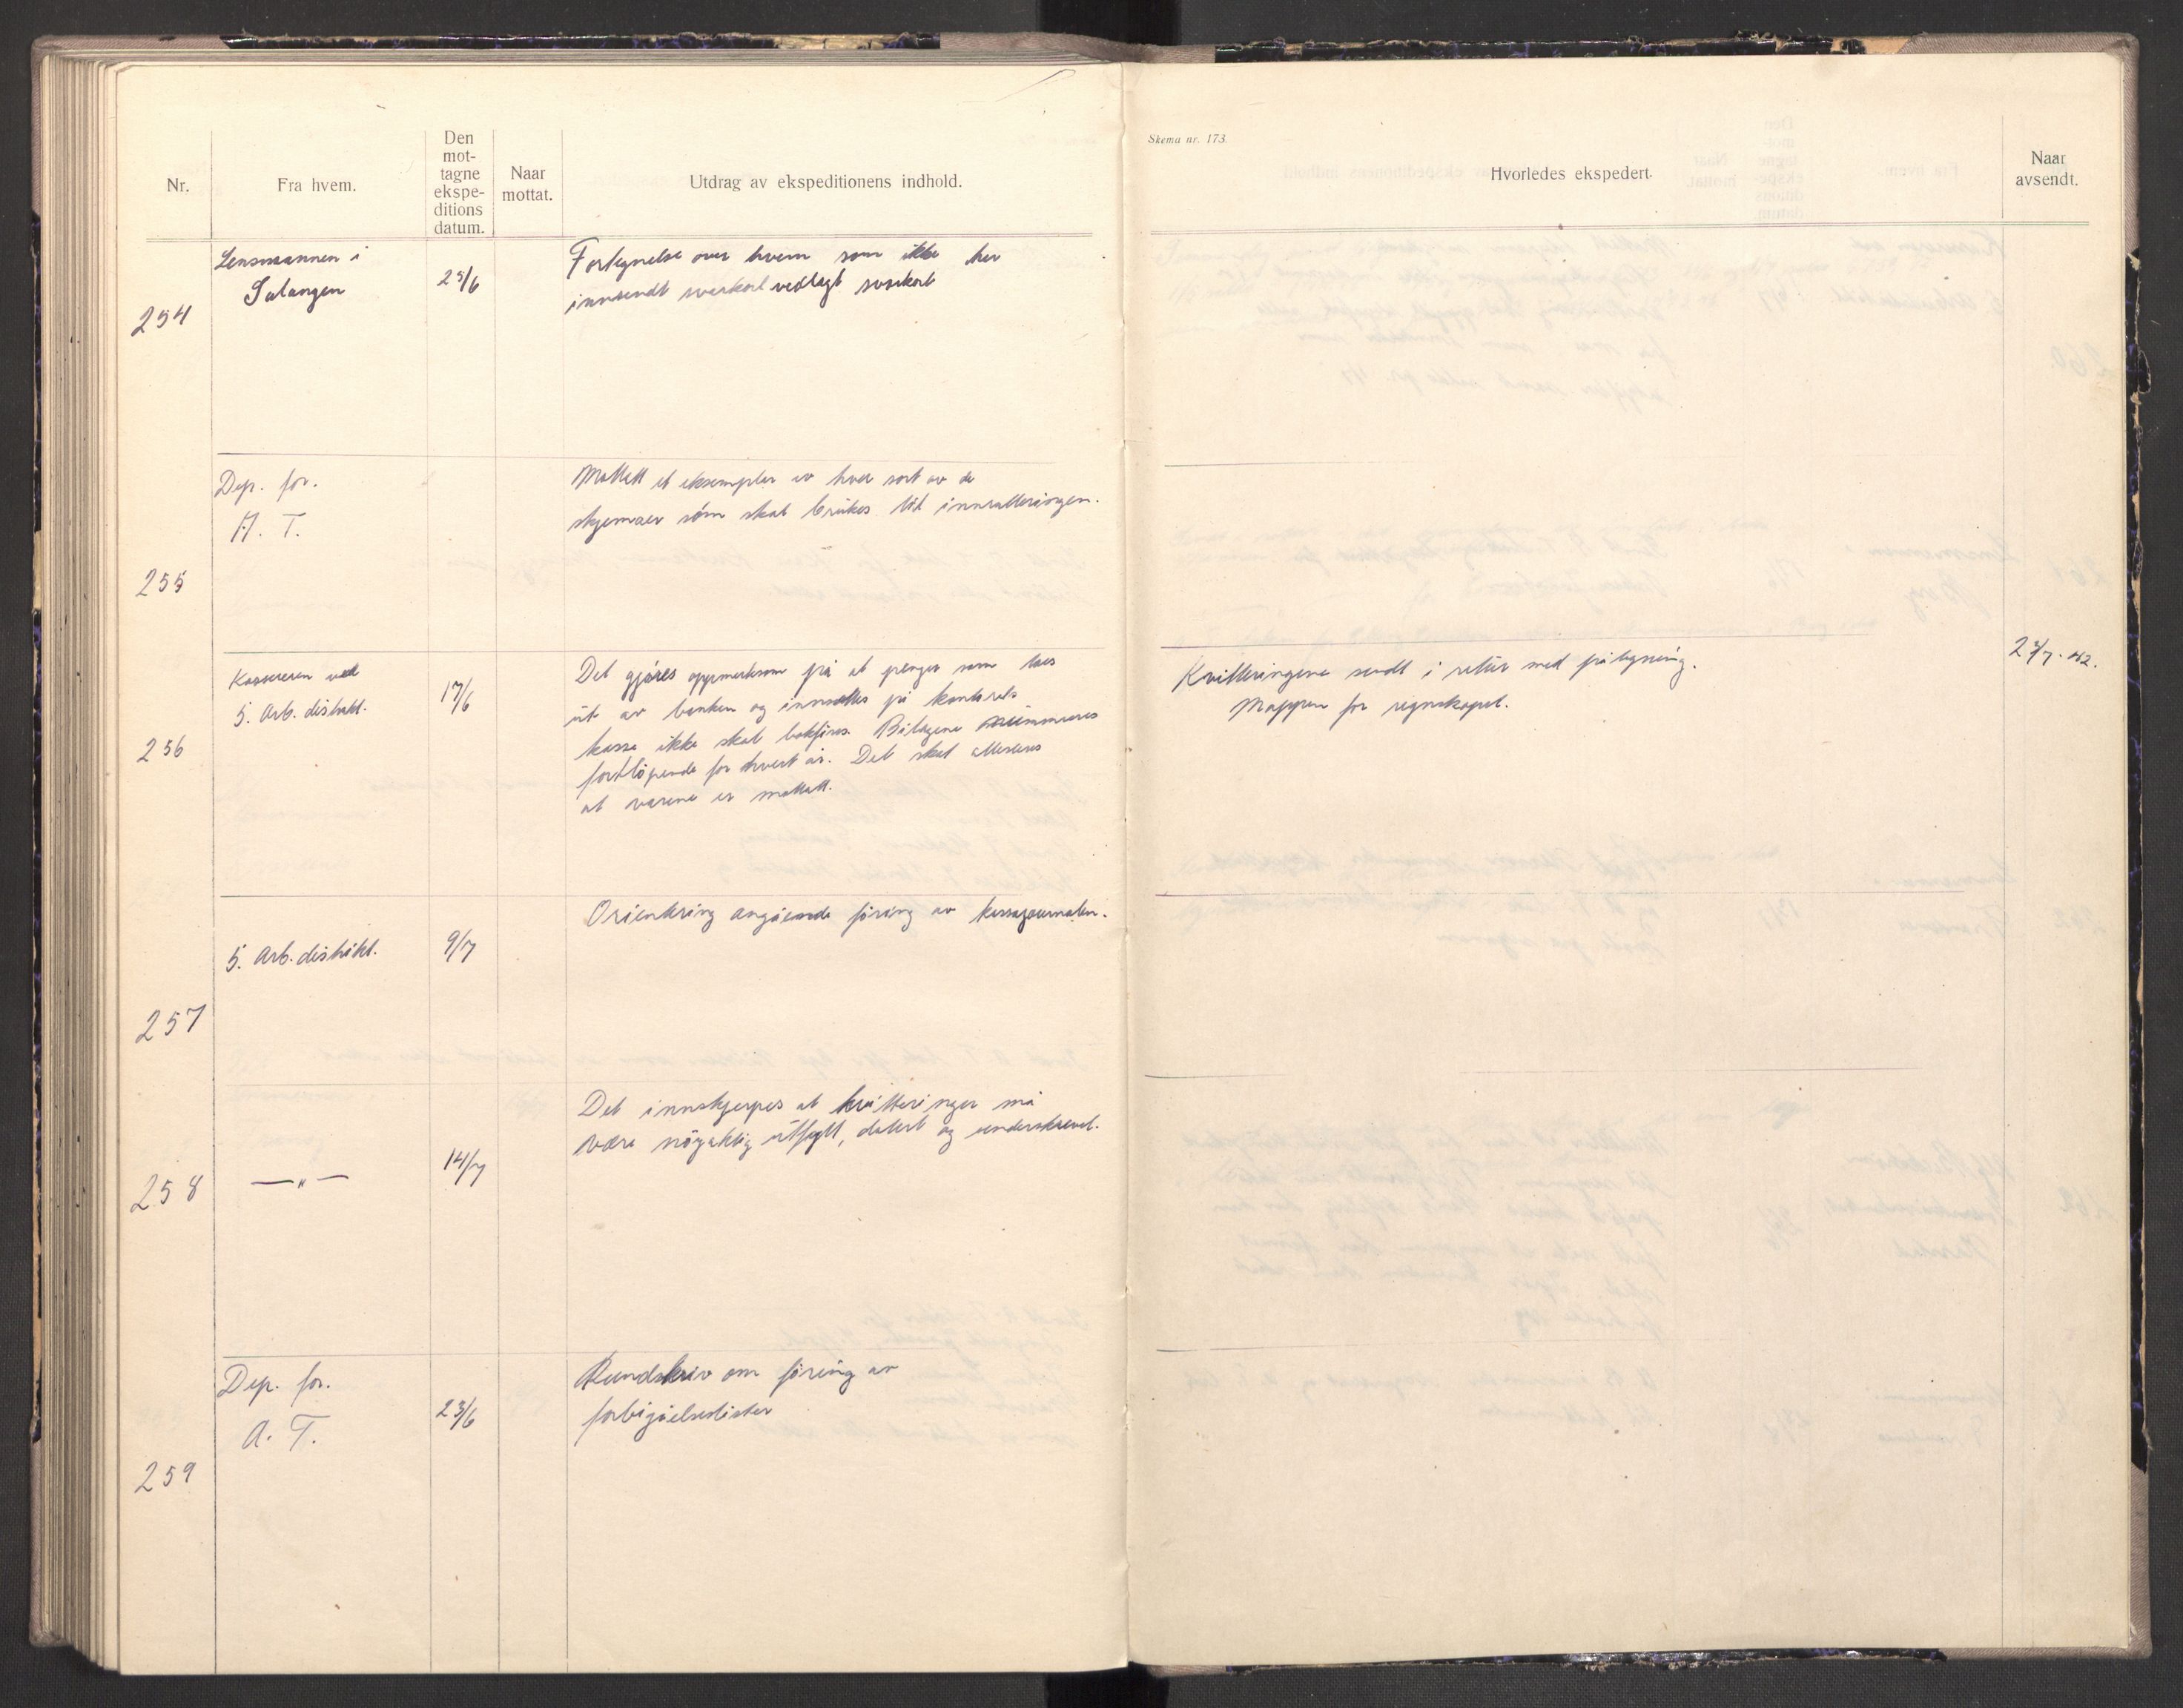 Skema nr. 173.
Nr.
Fra hvem.
Den
mot-
tagne
ekspe-
ditions
datum.
Naar
mottat.
Utdrag av ekspeditionens indhold.
Hvorledes ekspedert.
Naar
avsendt.
254
Lensmannen i
Salangen
25/6
Fortegnelse over hvem som ikke her
innsendt svarkort vedlagt svarkort
255
Dep. for.
A. T.
Mottatt et eksemplar av hver sort av de
skjemaer som skal brukes til innrulleringen.
256
Kassereren ved
5. Arb. distrikt.
17/6
Det gjøres oppmerksom på at penger som taes
ut av banken og innsettes på kontorets
kassa ikke skal bokføres. Bilagene nummereres
fortløpende for hvert år. Det skal attesteres
at varene er mottatt.
Kvitteringene sendt i retur med påtegning.
Mappen for regnskapet.
2/7. 42.
257
5. Arb. distrikt.
9/7
Orientering angående føring av kassajournalen.
258
—„—
14/7
Det innskjerpes at kvitteringer må
være nøyaktig utfylt, datert og underskrevet.
259
Dep. for.
A. T.
23/6
Rundskriv om føring av
forbigåelseslister